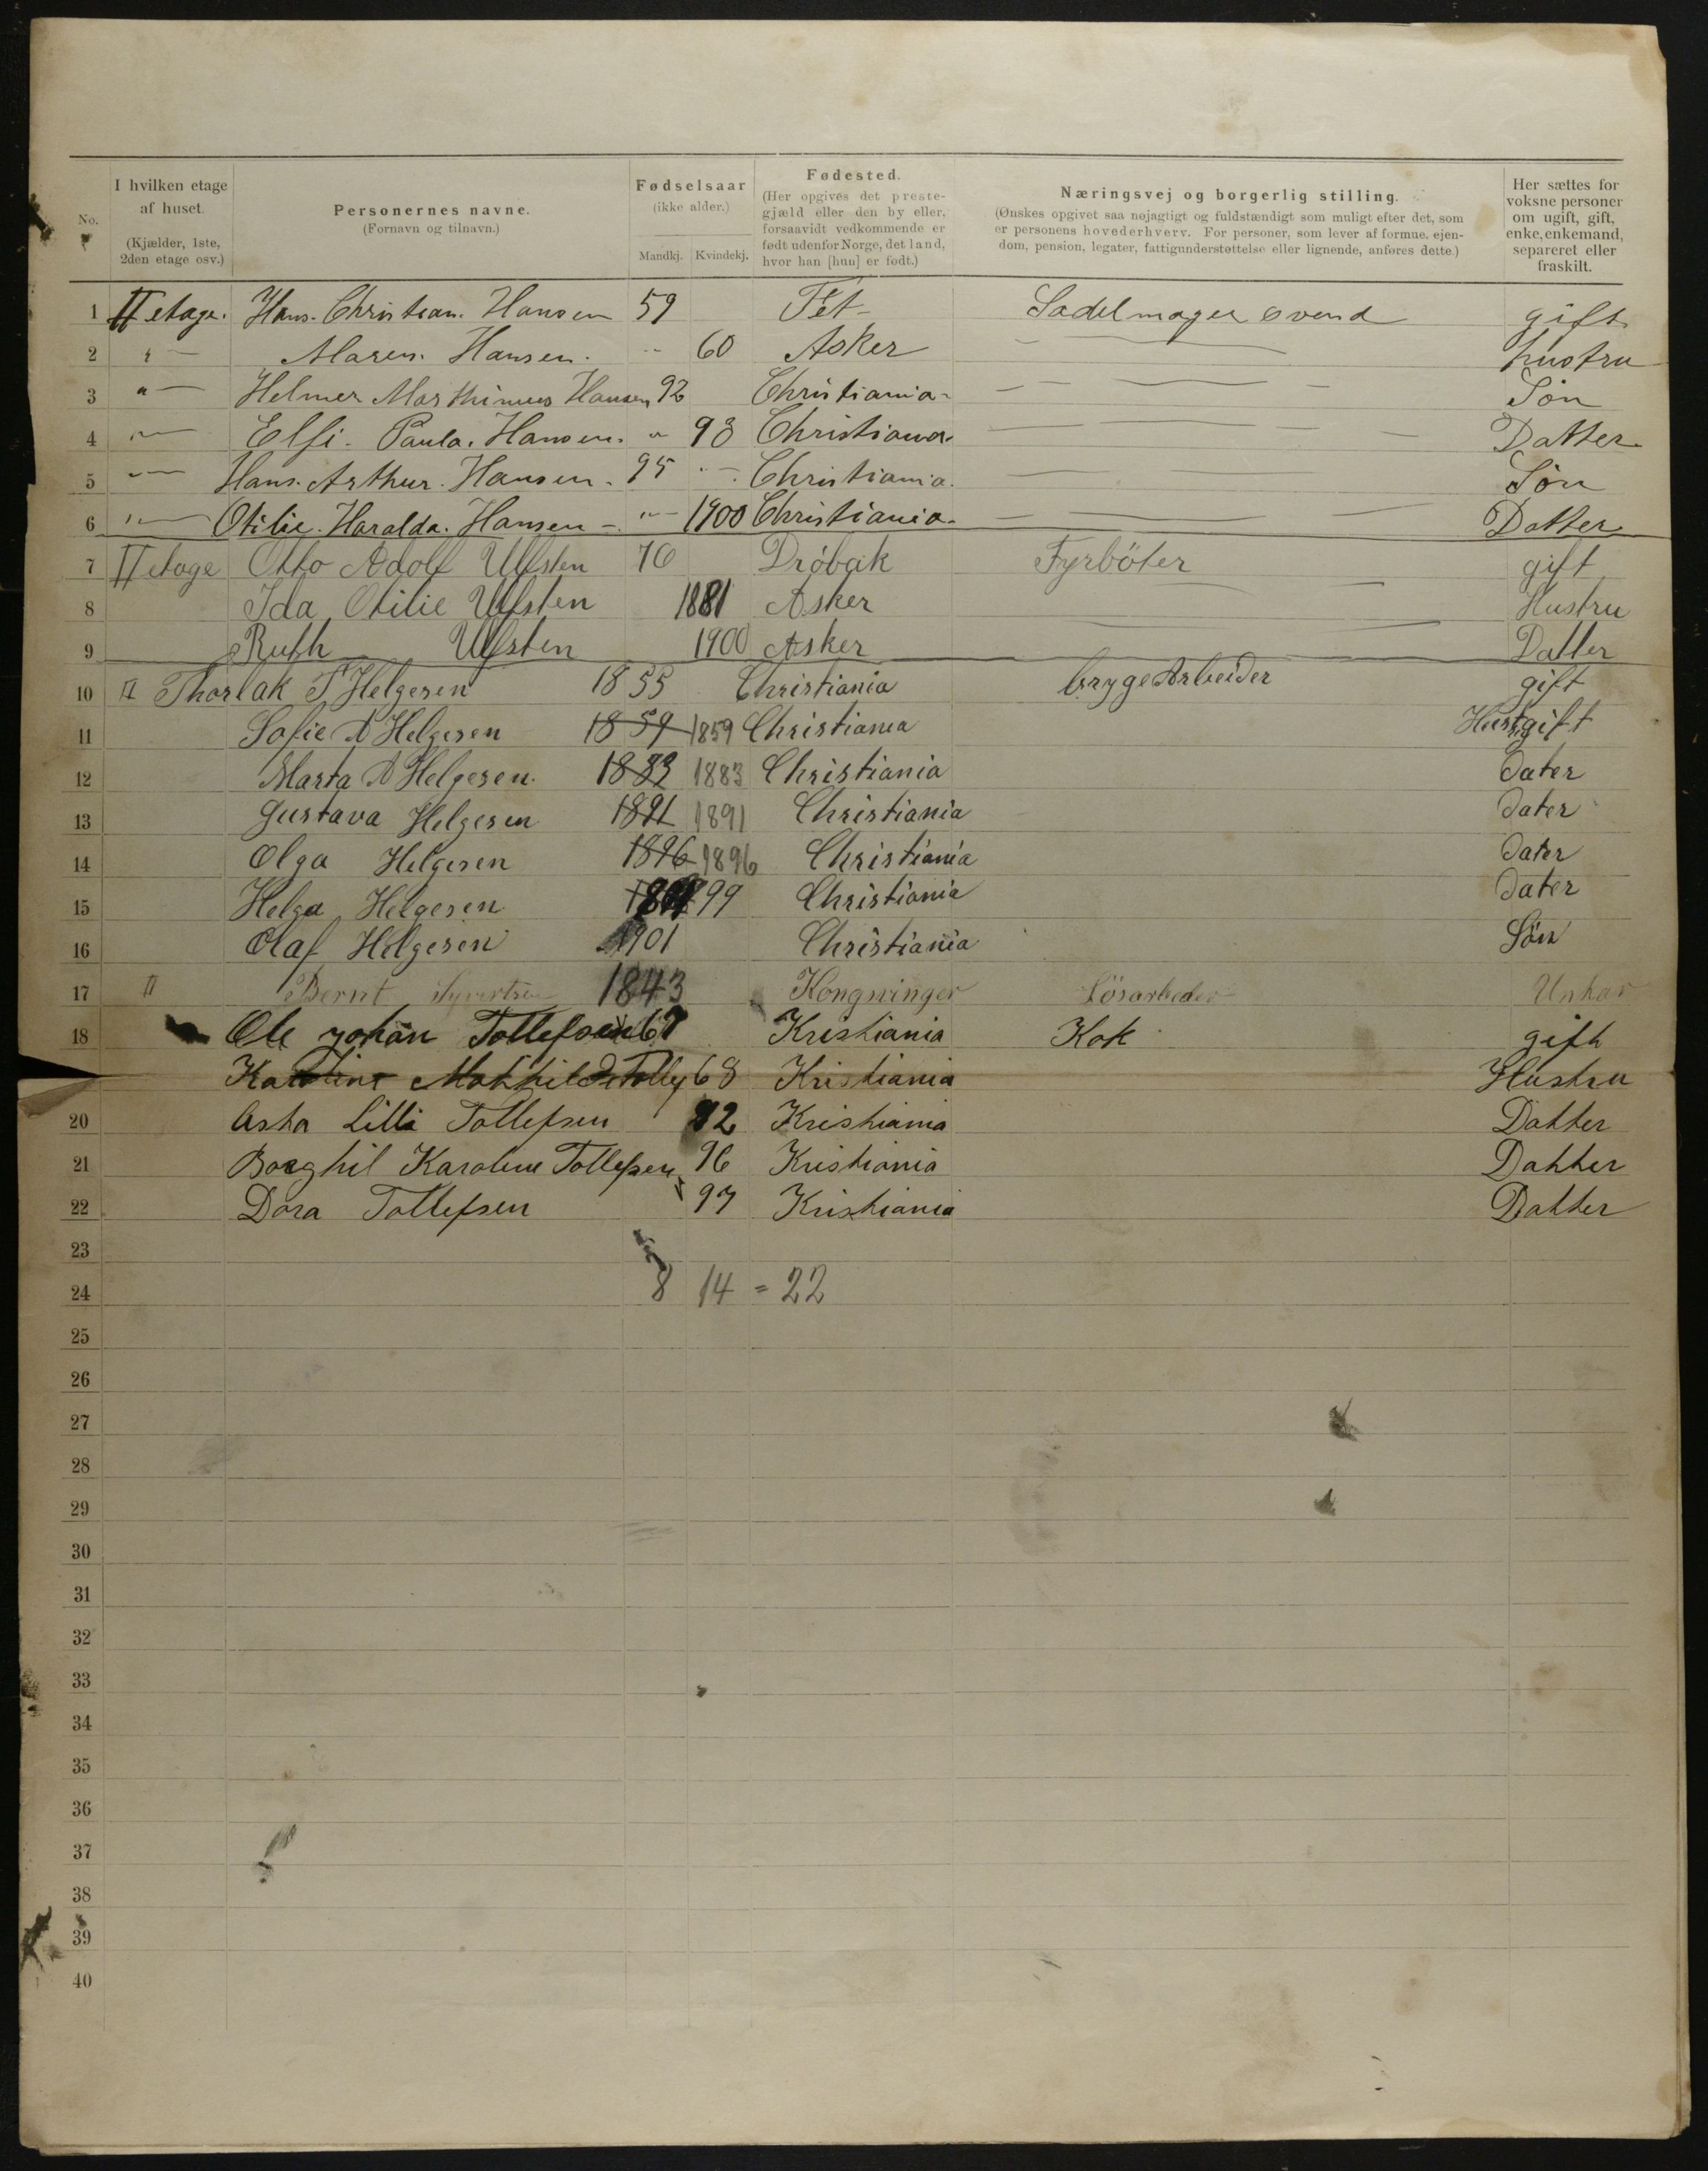 No. I hvilken etage af huset. (Kjælder, 1ste, 2den etage osv.) Personernes navne. (Fornavn og tilnavn.) Fødselsaar (ikke alder.) Mandkj. Kvindekj. Fødested. (Her opgives det prestegjæld eller den by eller, forsaavidt vedkommende er født udenfor Norge, det land, hvor han [hun] er født.) Næringsvej og borgerlig stilling. (Ønskes opgivet saa nøjagtigt og fuldstændigt som muligt efter det, som er personens hovederhverv. For personer, som lever af formue, ejendom, pension, legater, fattigunderstøttelse eller lignende, anføres dette.) Her sættes for voksne personer om ugift, gift, enke, enkemand, separeret eller fraskilt.
1 II etage. Hans. Christian. Hansen 59 Fet Sadelmager svend gift
2 " — Maren. Hansen. " 60 Asker — hustru
3 " — Helmer Marthinius Hansen 92 Christiania — — — — Søn
4 " — Elfi. Paula. Hansen. " 93 Christiania — — — — Datter
5 " — Hans. Arthur. Hansen. 95 " — Christiania. — — Søn
6 " — Otilie. Haralda. Hansen — " — 1900 Christiania. — — — Datter
7 II etage Otto Adolf Ulfsten 76 Dröbak Fyrböter gift
8 Ida Otilie Ulfsten 1881 Asker Hustru
9 Ruth Ulfsten 1900 Asker Datter
10 II Thorlak T Helgesen 1855 Christiania brygeArbeider gift
11 Sofie A Helgesen 1859 1859 Christiania Hust gift
12 Marta A Helgesen. 1883 1883 Christiania Dater
13 Gustava Helgesen 1891 1891 Christiania Dater
14 Olga Helgesen 1896 1896 Christiania Dater
15 Helga Helgesen 99 Christiania Dater
16 Olaf Helgesen 1901 Christiania Sön
17 II Bernt Syvertsen 1843 Kongsvinger Lösarbeder Unkar
18 Ole Johan Tollefsen 67 Kristiania Kok gift
Karoline Mathilde Tollef 68 Kristiania Hustru
20 Asta Lilli Tollefsen 92 Kristiania Datter
21 Borghil Karoline Tollefsen 96 Kristiania Datter
22 Dora Tollefsen 97 Kristiania Datter
23
24 8 14 = 22
25
26
27
28
29
30
31
32
33
34
35
36
37
38
39
40